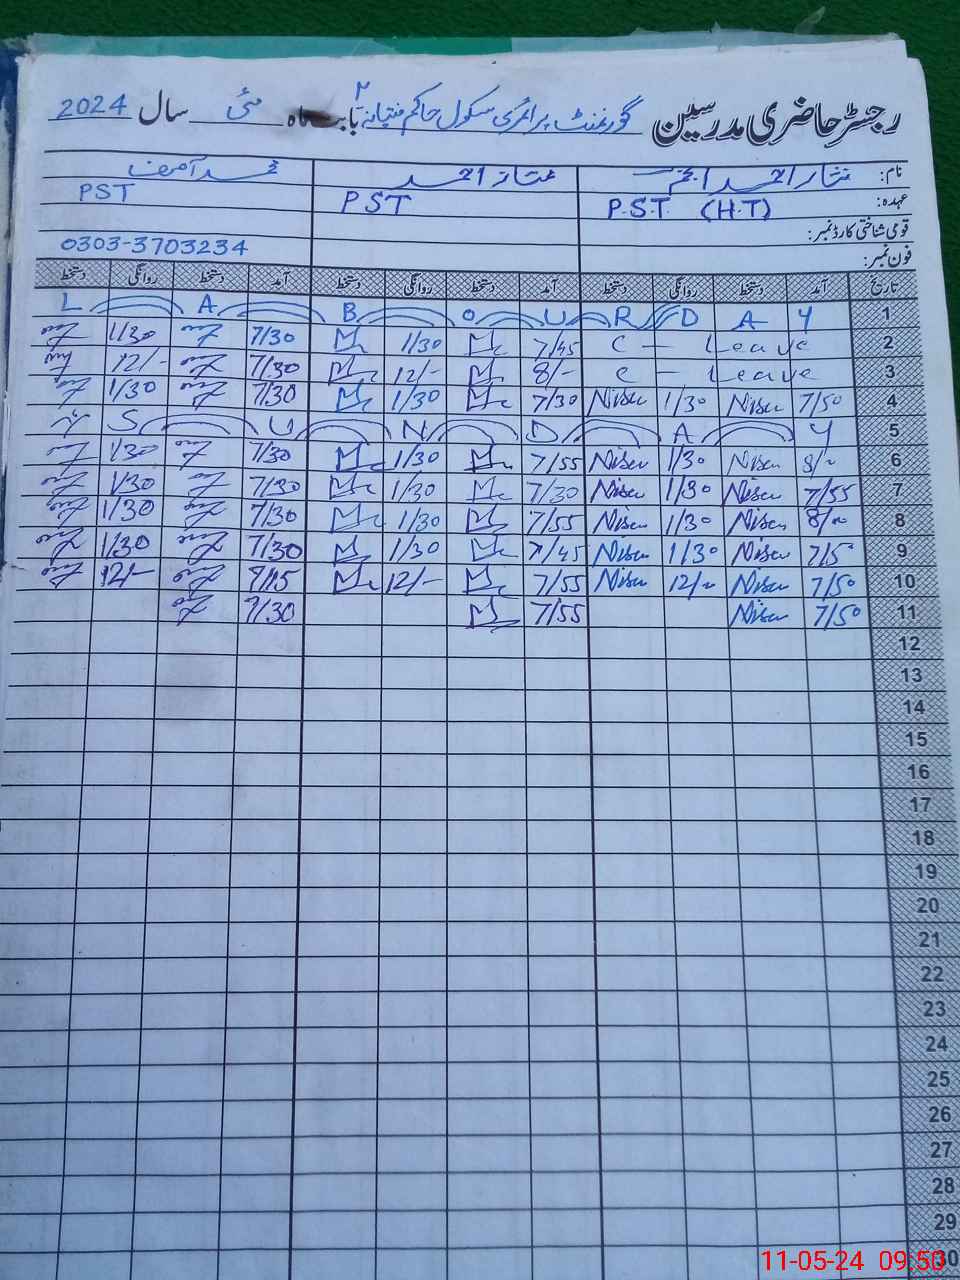 رجسٹر حاضری مدرسین گورنمنٹ پرائمری سکول حاکم بابت ماہ مئی سال 2024
نام: نثار احمد انجم ممتاز احمد محمد آصف
عہدہ: P.S.T. (H.T) PST PST
قومی شناختی کارڈ نمبر:
فون نمبر: 0303-3703234
تاریخ آمد دستخط روانگی دستخط آمد دستخط روانگی دستخط آمد دستخط روانگی دستخط
L A B O U R D A Y 1
1/30 7/30 1/30 7/45 C - Leave 2
12/- 7/30 12/- 8/- C - Leave 3
1/30 7/30 1/30 7/30 Nisar 1/30 Nisar 7/50 4
S U N D A Y 5
1/30 7/30 1/30 7/55 Nisar 1/30 Nisar 8/- 6
1/30 7/30 1/30 7/30 Nisar 1/30 Nisar 7/55 7
1/30 7/30 1/30 7/55 Nisar 1/30 Nisar 8/- 8
1/30 7/30 1/30 7/45 Nisar 1/30 Nisar 7/50 9
12/- 12/- 7/55 Nisar 12/- Nisar 7/50 10
7/55 Nisar 7/50 11
12
13
14
15
16
17
18
19
20
21
22
23
24
25
26
27
28
29
30
11-05-24 09,50